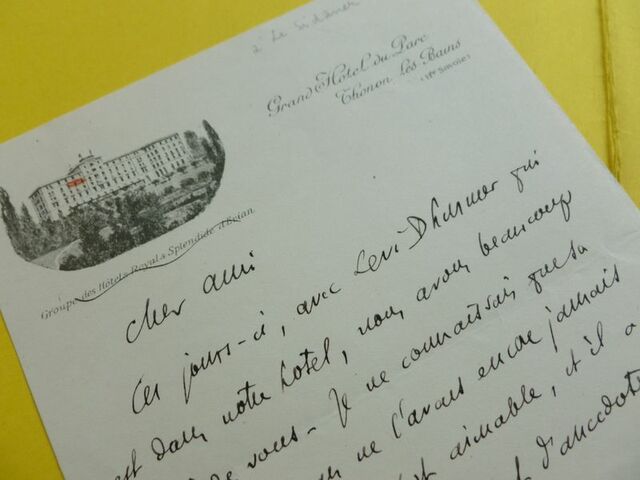 à Le Sidaner
Grand Hôtel du Parc
Thonon Les Bains
(Hte Savoie)
Groupe des Hôtels Royal & Splendide d'Evian
Cher ami
Ces jours-ci, avec Levi Dhurmer qui
est dans notre hotel, nous avons beaucoup
de vous - Je ne connaissais que sa
ne l'avais encore jamais
est aimable, et il a
d'anecdote